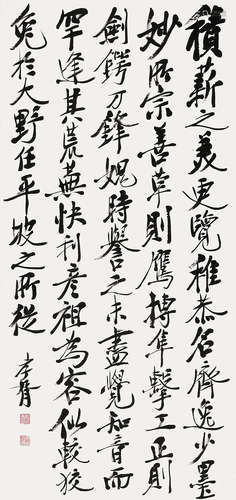 積薪之美更覽稚恭名齊逸少墨
妙所宗善草則鷹搏隼擊工正則
劍鍔刀鋒媿時譽之未盡覺知音而
罕逢其荒蕪快利彥祖為容似較狡
兔於大野任平坡之所從
李